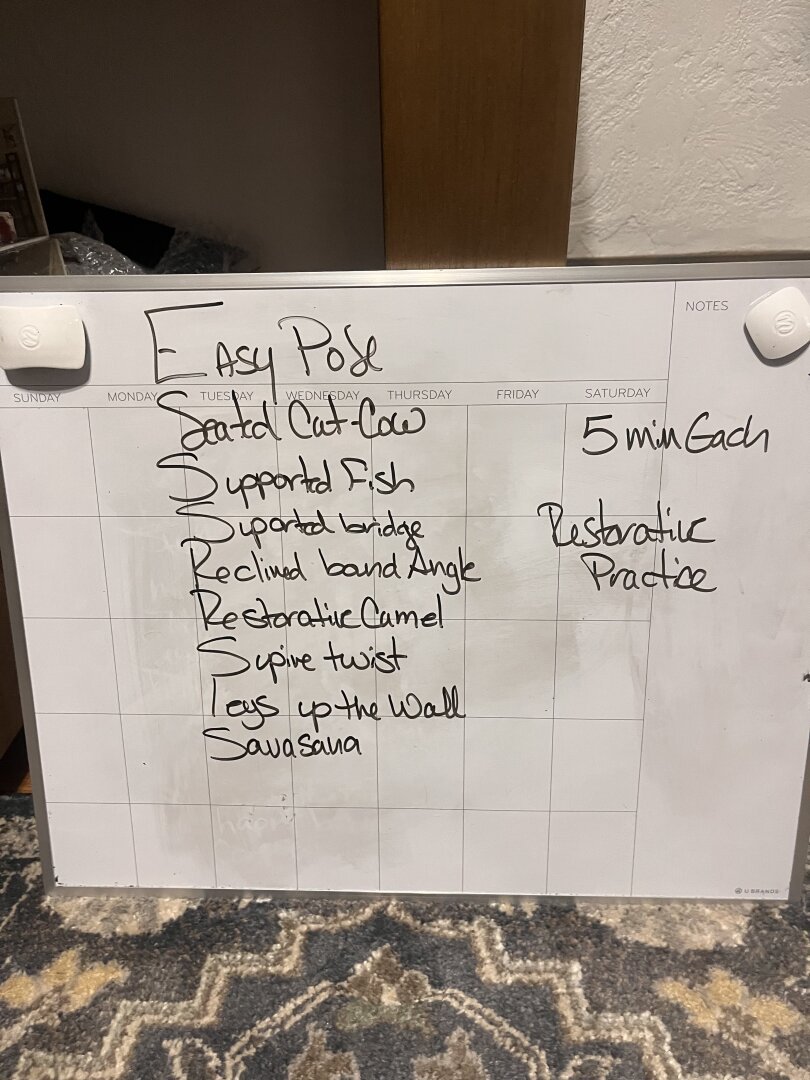 Easy Pose
NOTES
SUNDAY MONDAY TUESDAY WEDNESDAY THURSDAY FRIDAY SATURDAY
Seated Cat-Cow
5 min Each
Supported Fish
Suported bridge
Restorative
Reclined bound Angle
Practice
Restorative Camel
Supine twist
legs up the Wall
Savasana
U BRANDS